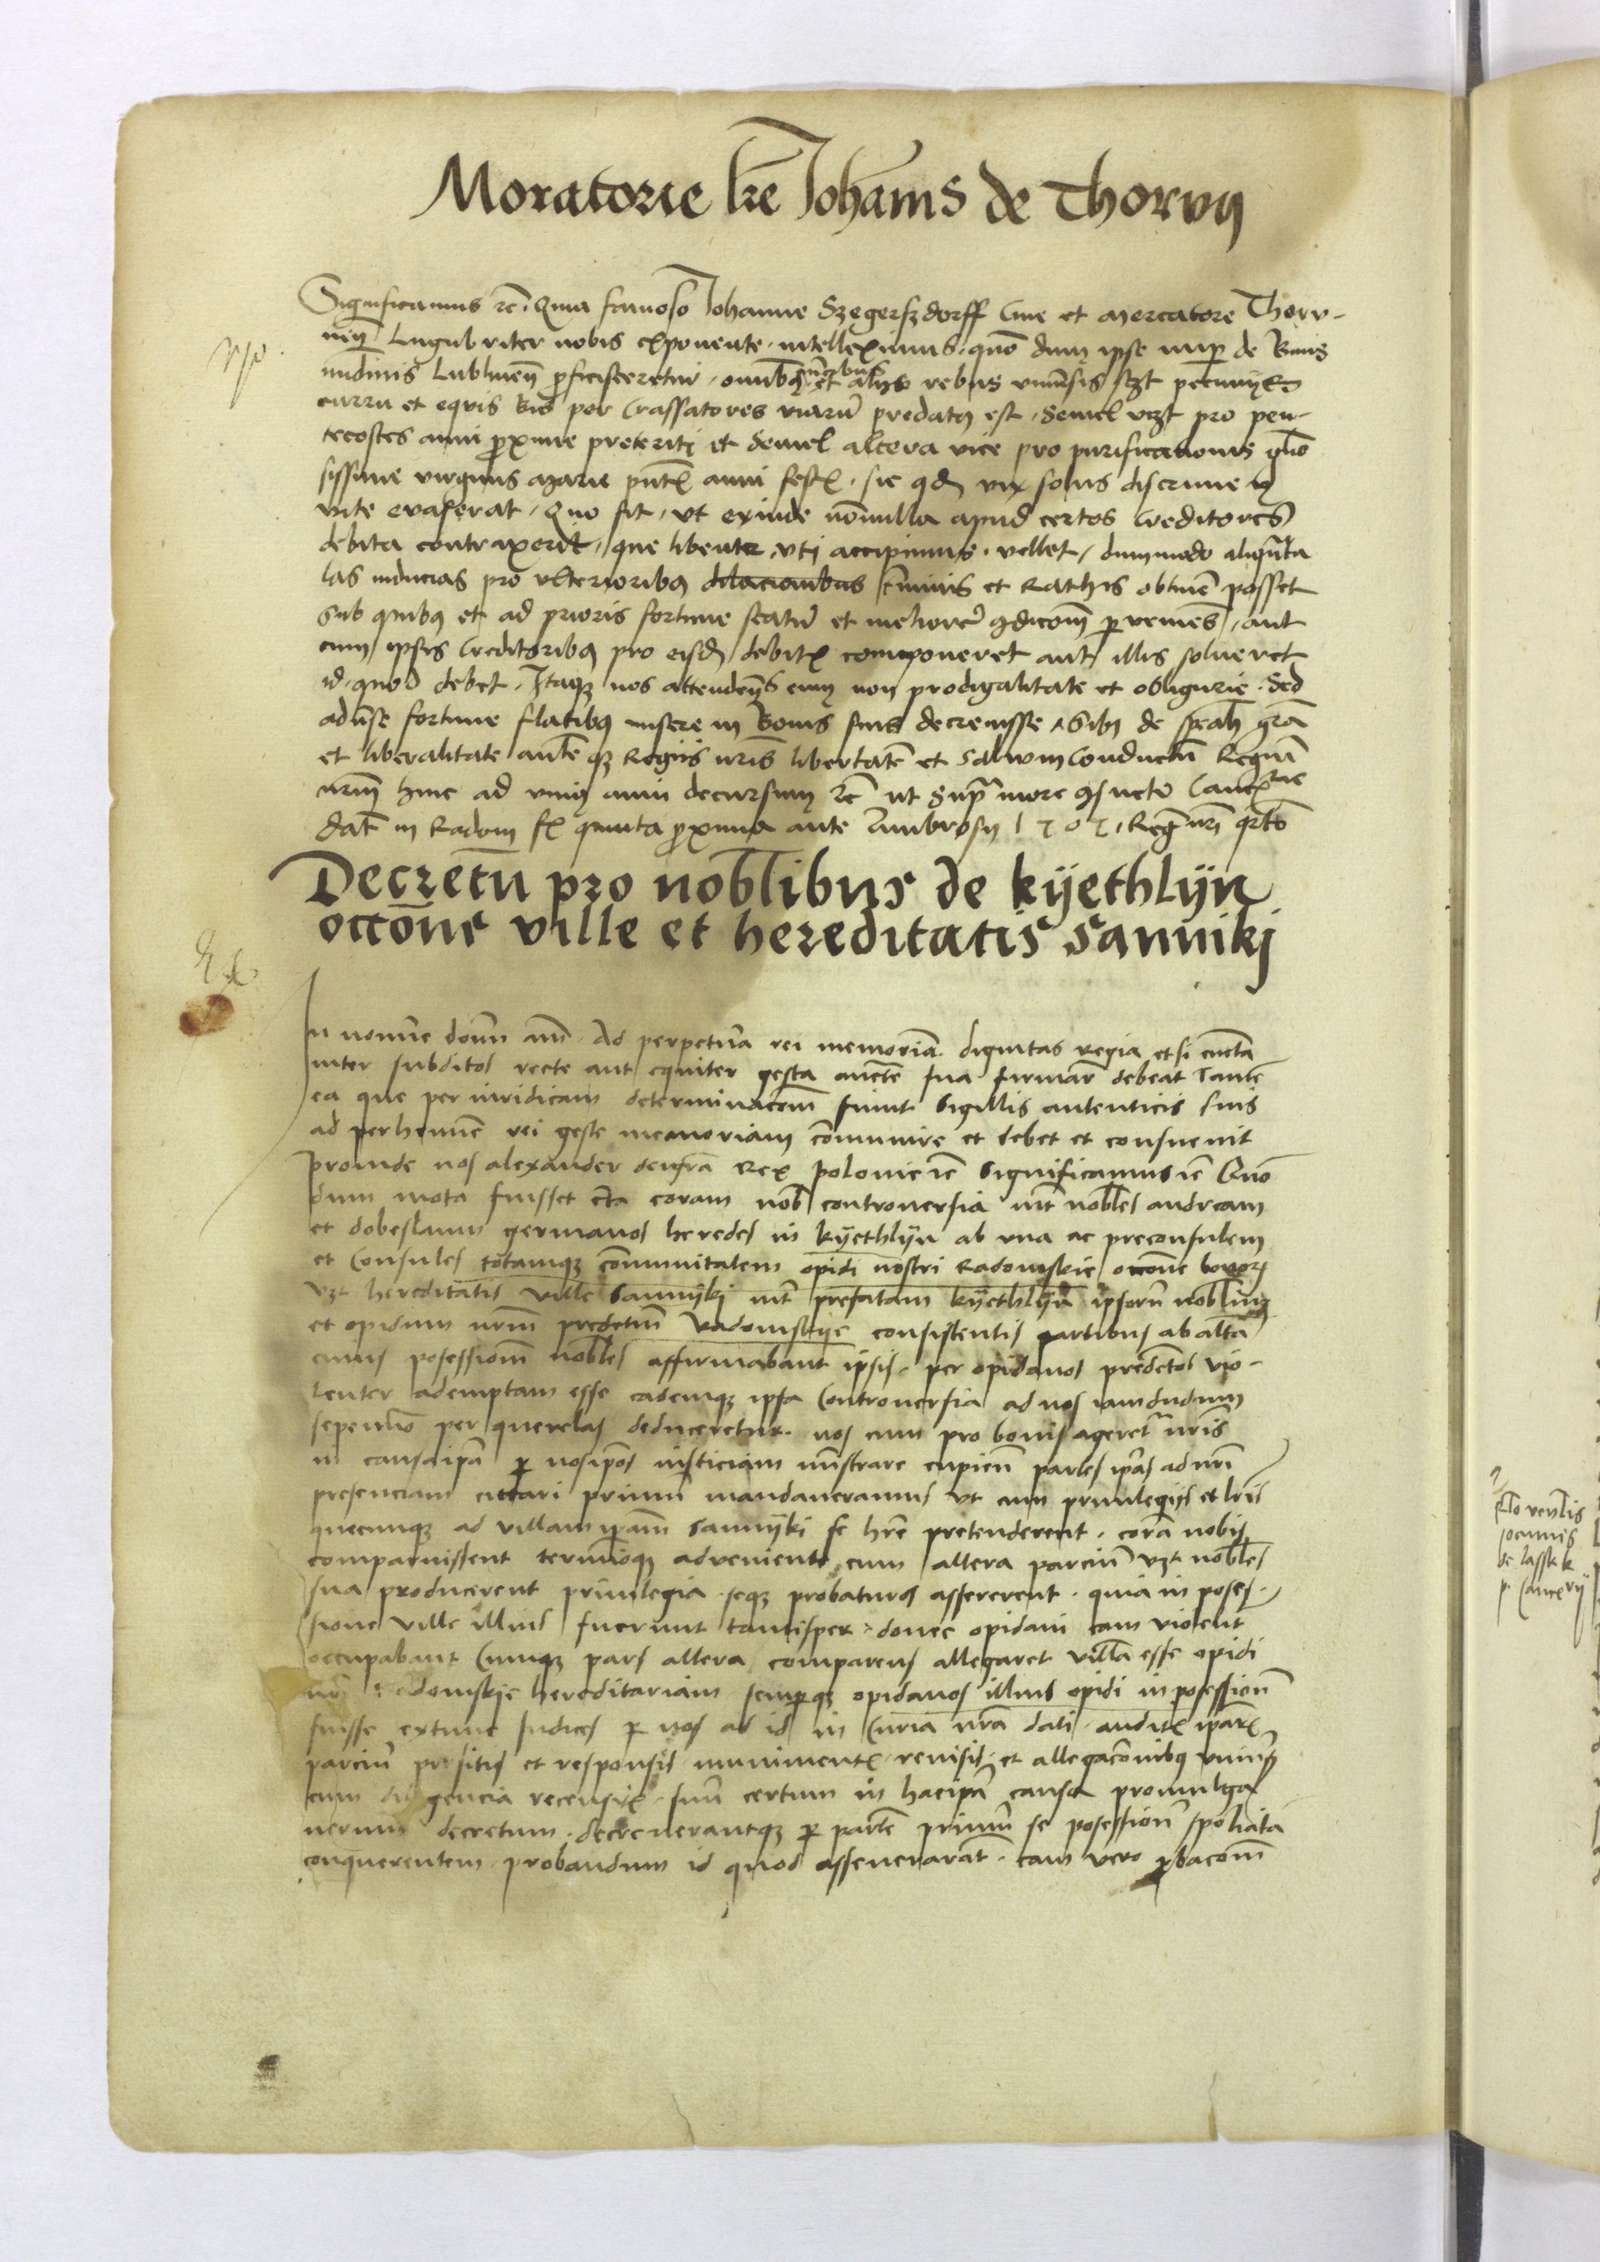 Moratorie lre Johannis de Thorvn
Significamus etc. Quia famoso Johanne Szegerszdorff Cive et mercatore Thoru-
nen Lugubriter nobis exponente intelleximus quo dum ipse nup de Binis
nundinis Lublinen proficisceretur omnibus mercibus et aliis rebus universis pecuniis
curru et equis bis per Crassatores viarum predatus est Semel vzt pro pen-
tecostes anni proxime preteriti et Semel altera vice pro purificationis glorio
sissime virginis Marie pntis anni festis sic qd vix solus discrimen
vite evaserat Quo fit ut exinde nonnulla apud certos Creditores
debita contraxerit que libenter uti accipimus vellet dummodo aliquanta
las inducias pro ulterioribus dilacionibus terminis et Rathis obtinere posset
sub quibus et ad prioris fortune statum et meliorem condicom perveniens aut
cum ipsis Creditoribus pro eisdem debitis componeret aut illis solveret
id quod debet Itaque nos attendentes eum non prodigalitate et obligurie Sed
adverse fortune flatibus misere in Bonis suis decrevisse Sibi de speali gra
et liberalitate auteque Regiis nris libertatem et Salvum Conductum Regium
nrum hinc ad unius anni decursum etc ut supra more consueto Cancellarie
Dat in Radom f quinta proxima ante Ambrosii 1505 Regni nri quarto
Decretu pro noblibus de kyethlyn
occone ville et hereditatis Sanniki
In nomine domini am Ad perpetuam rei memoriam dignitas regia et si cuncta
inter subditos recte aut equiter gesta aucte sua firmare debeat Tamen
ea que per iuridicam determinacom fiunt Sigillis autenticis suis
ad perhennem rei geste memoriam communire et debet et consuevit
proinde nos alexander dei gra Rex polonie etc Significamus etc Quo
dum mota fuisset cta coram nob controversia int nobles andream
et dobeslaum germanos heredes in kyethlyn ab una ac preconsulem
et Consules totamque communitatem opidi nostri Radomskie occone bonorum
vzt hereditatis ville Sannyki int prefatam kyethlyn ipsorum noblium
et opidum nrum predctum Radomskye consistentis partibus ab altera
cuius posessionem nobles affirmabant ipsis per opidanos predictos vio-
lenter ademptam esse eademque ipsa Controversia ad nos iamdudum
sepenumero per querelas deduceretur nos cum pro bonis ageretur nris
in causa ipa p nosipos iusticiam mnstrare cupien partes ipas ad nri
presenciam cittari primum mandaveramus ut cum privilegiis et lris
quecunque ad villam ipam Sannyki se hre pretenderent cora nobis
comparuissent terminoque adveniente cum altera parcium vzt nobles
sua producerent privilegia seque probaturos assererent quia in poses-
sione ville illius fuerunt tantisper donec opidani eam violent
occupabant Cumque pars altera comparens allegaret villa esse opidi
nri Radomskie hereditariam semperque opidanos illius opidi in posession
fuisse extunc Iudices p nos ad id in Curia nra dati auditis iparum
parcium prositis et responsis munimentis revisis et allegacionibus unius
cum diligencia recensitis suum certum in hac ipa causa promulga
verunt decretum decreverantque p parte primum se posession spoliata
conquerentem probandum id quod asseverarat eam vero pbacom